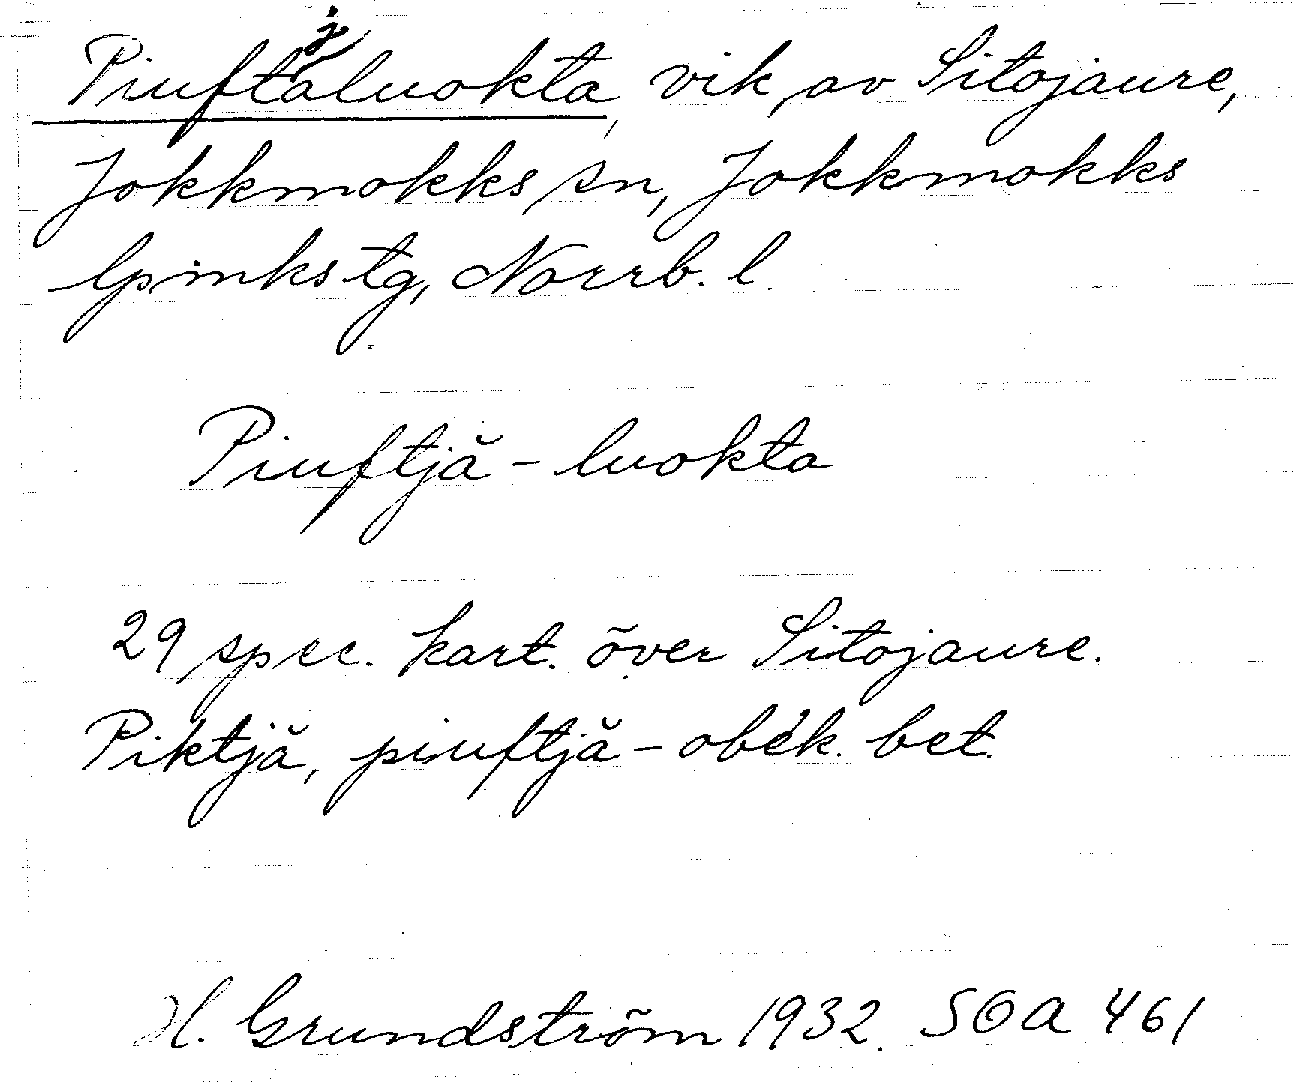 Piuftjaluokta, vik av Sitojaure,
Jokkmokks sn, Jokkmokks
lpmks tg, Norrb. l.
Piuftjă - luokta
29 spec. kart. över Sitojaure.
Piktjă, piuftjă - obék. bet.
H. Grundström 1932. SOA 461